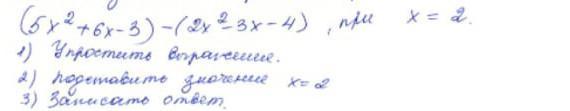 (5x²+6x-3)-(2x²-3x-4), при x=2.
1) Упростить выражение.
2) подставить значение x=2
3) Записать ответ.